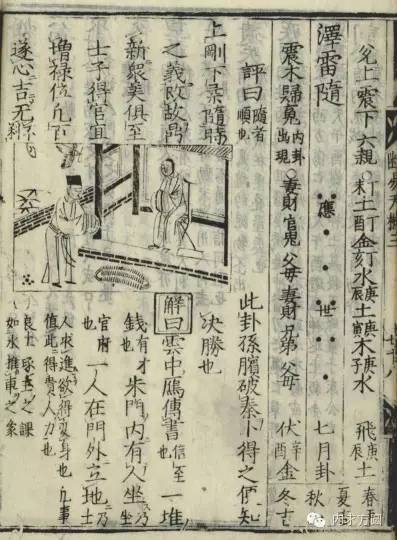 兌上震下六親 丁未土 丁酉金 丁亥水 庚辰土 庚寅木 庚子水 飛庚辰土 春
澤雷隨 應 世 七月卦 秋 夏
震木歸䰟 内卦出現 妻財官鬼父母妻財兄弟父母 伏辛酉金 冬吉
評曰 隨者順也
上剛下柔隨時
之義改故鼎
新衆美俱至
士子得官宜
增祿位凡百
遂心吉无不利
此卦孫臏破秦卜得之便知
決勝也
解曰雲中鴈傳書 信至也 一堆
錢 有才也 朱門内有人坐 坐乃
官府也 一人在門外立地 立乃
人來進欲得変身也 凡事
值此得貴人力也
良工琢玉之課
如水推車之象